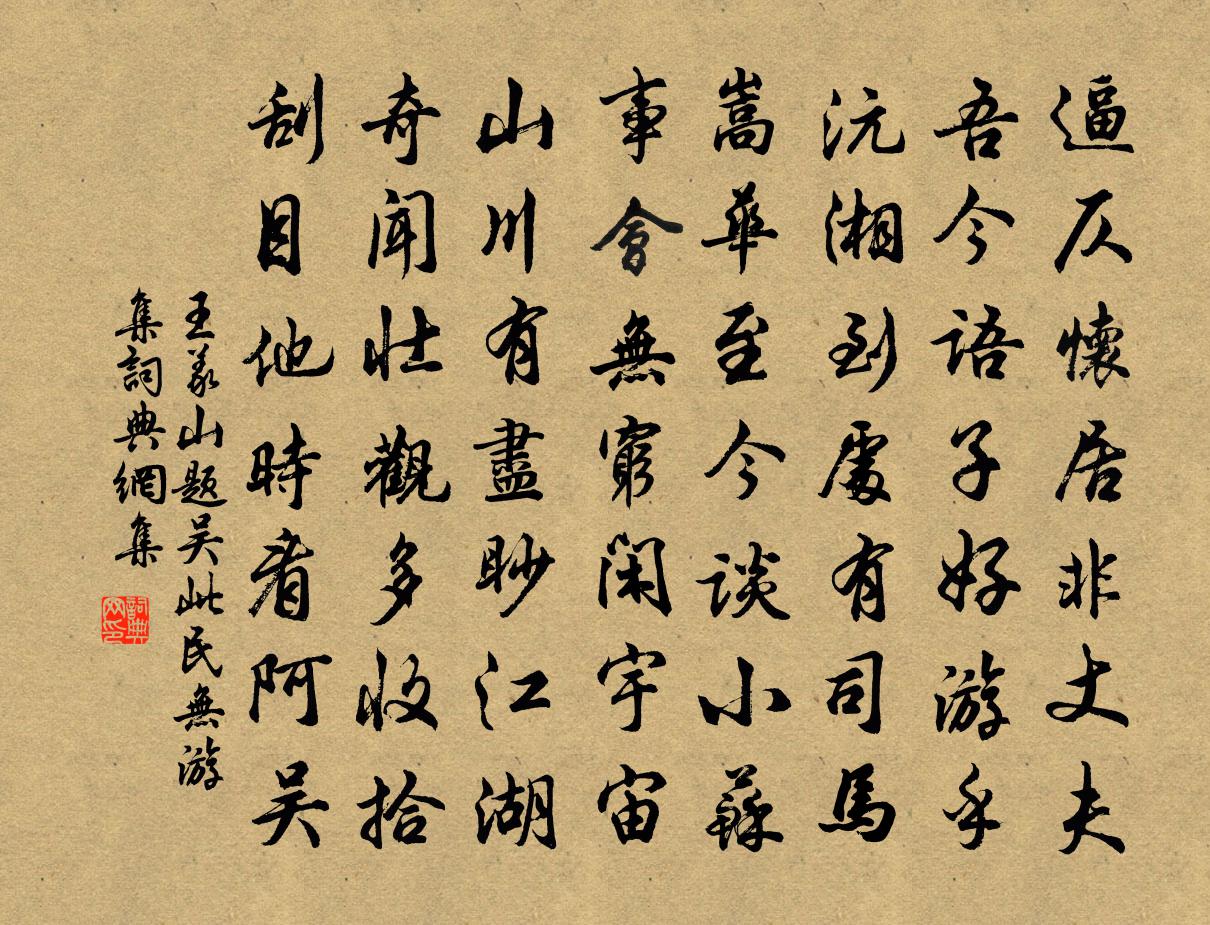 逼仄懷居非丈夫
吾今語子好游乎
沅湘到處有司馬
嵩華至今談小蘇
事會無窮閑宇宙
山川有盡眇江湖
奇聞壯觀多收拾
刮目他時看阿吳
王義山題吳此民無游
集詞典網集
詞典网印